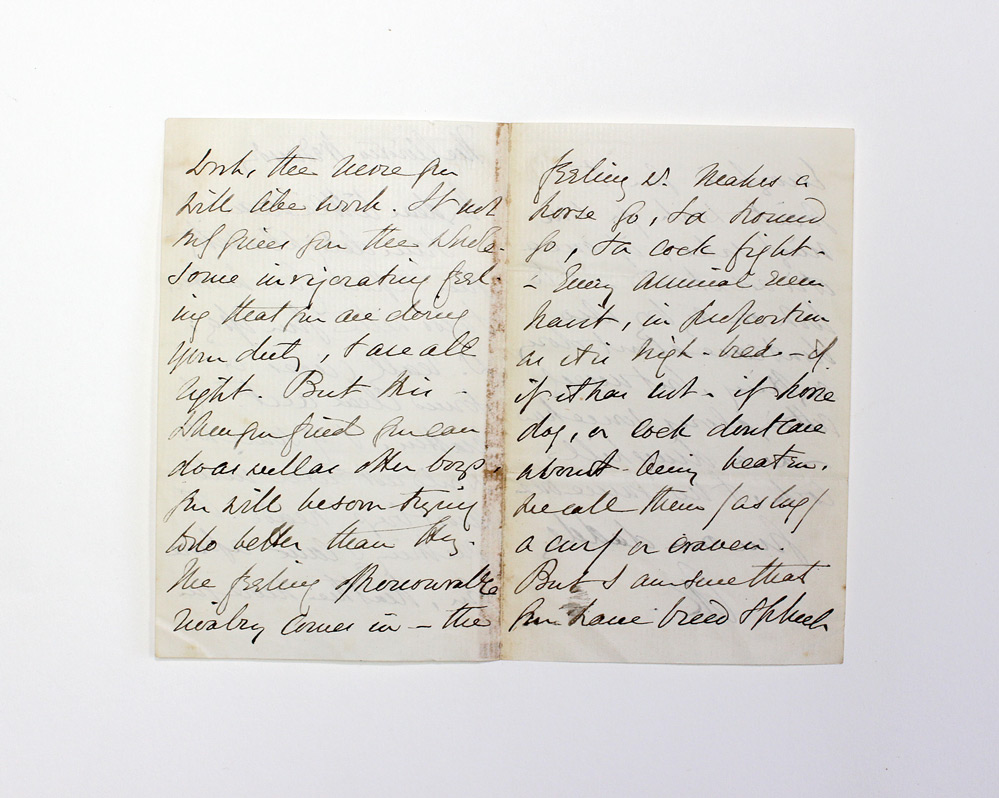 work, the more you
will like work. It not
only gives you the whole-
some invigorating feel-
ing that you are doing
your duty, & are all
right. But this —
When you find you can
do as well as other boys,
you will be soon trying
to do better than they.
The feeling of honourable
rivalry comes in — the
feeling wh. makes a
horse go, & a hound
go, & a cock fight.
— Every animal even
has it, in proportion
as it is high-bred — &
if it has not — if horse
dog, or cock dont care
about being beaten,
we call them (as by)
a cur, or craven.
But I am sure that
you have breed & pluck